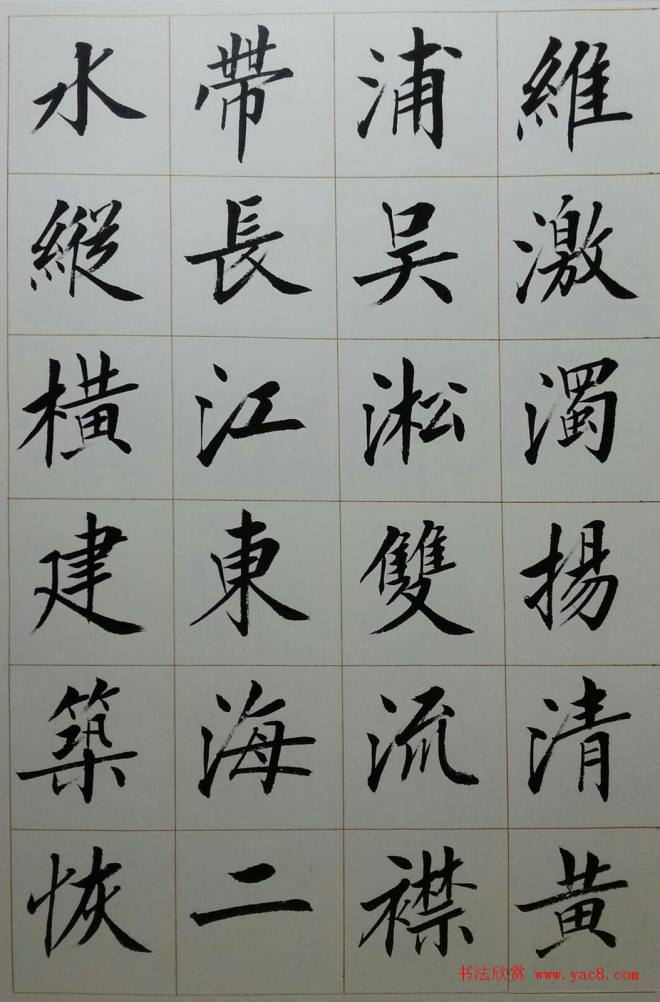 維激濁揚清黃
浦吴淞雙流襟
帶長江東海二
水縱橫建築恢
书法欣赏 www.yac8.com